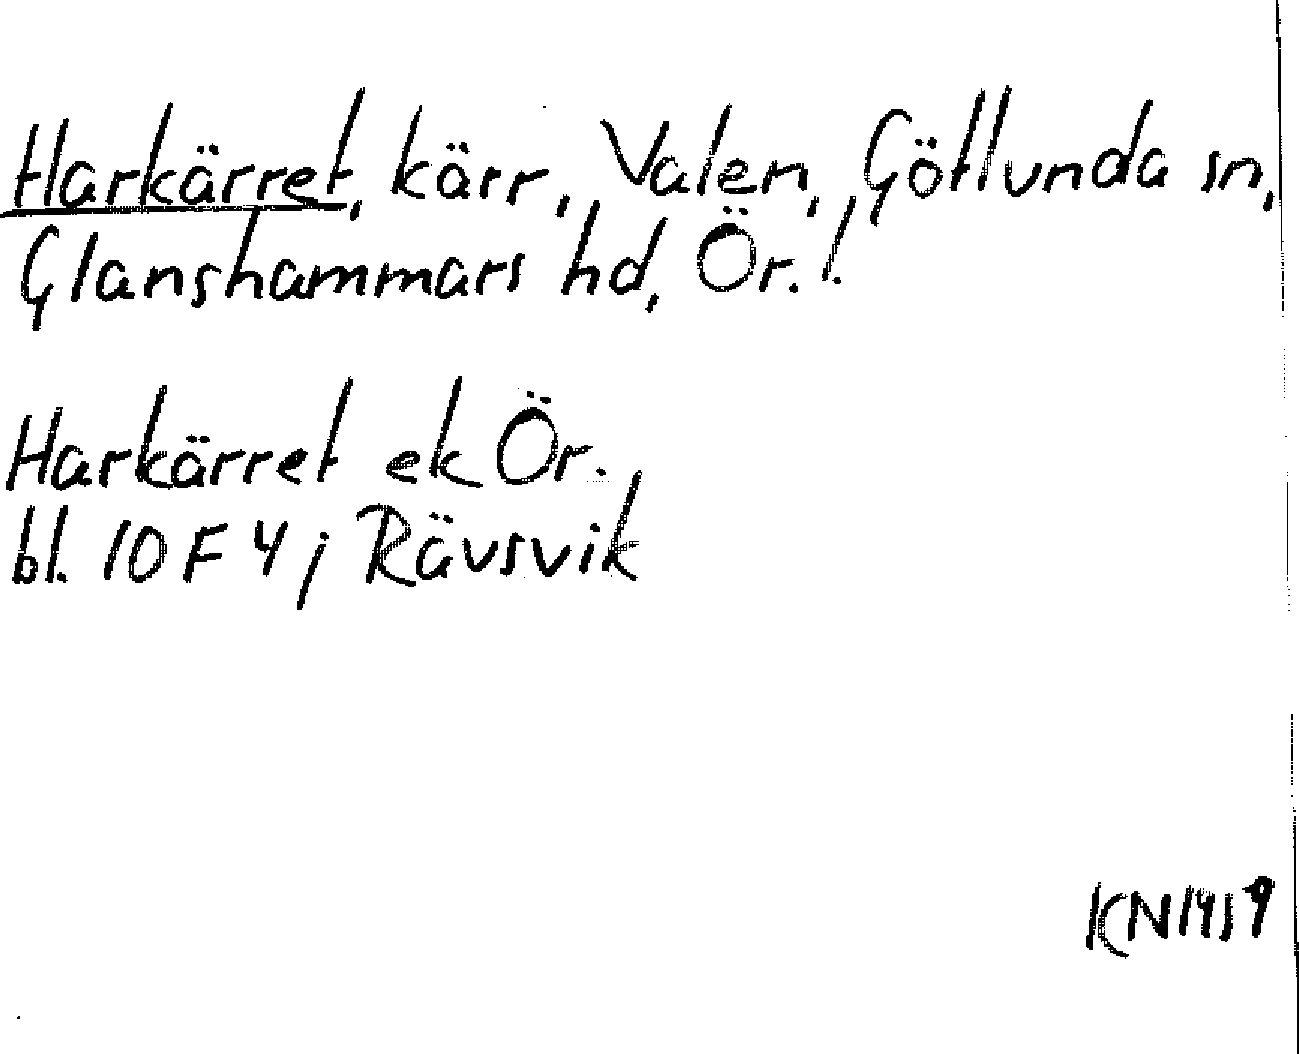 Harkärret, kärr, Valen, Götlunda sn,
Glanshammars hd, Ör. l.
Harkärret ek Ör.
bl. 10 F 4 j Rävsvik